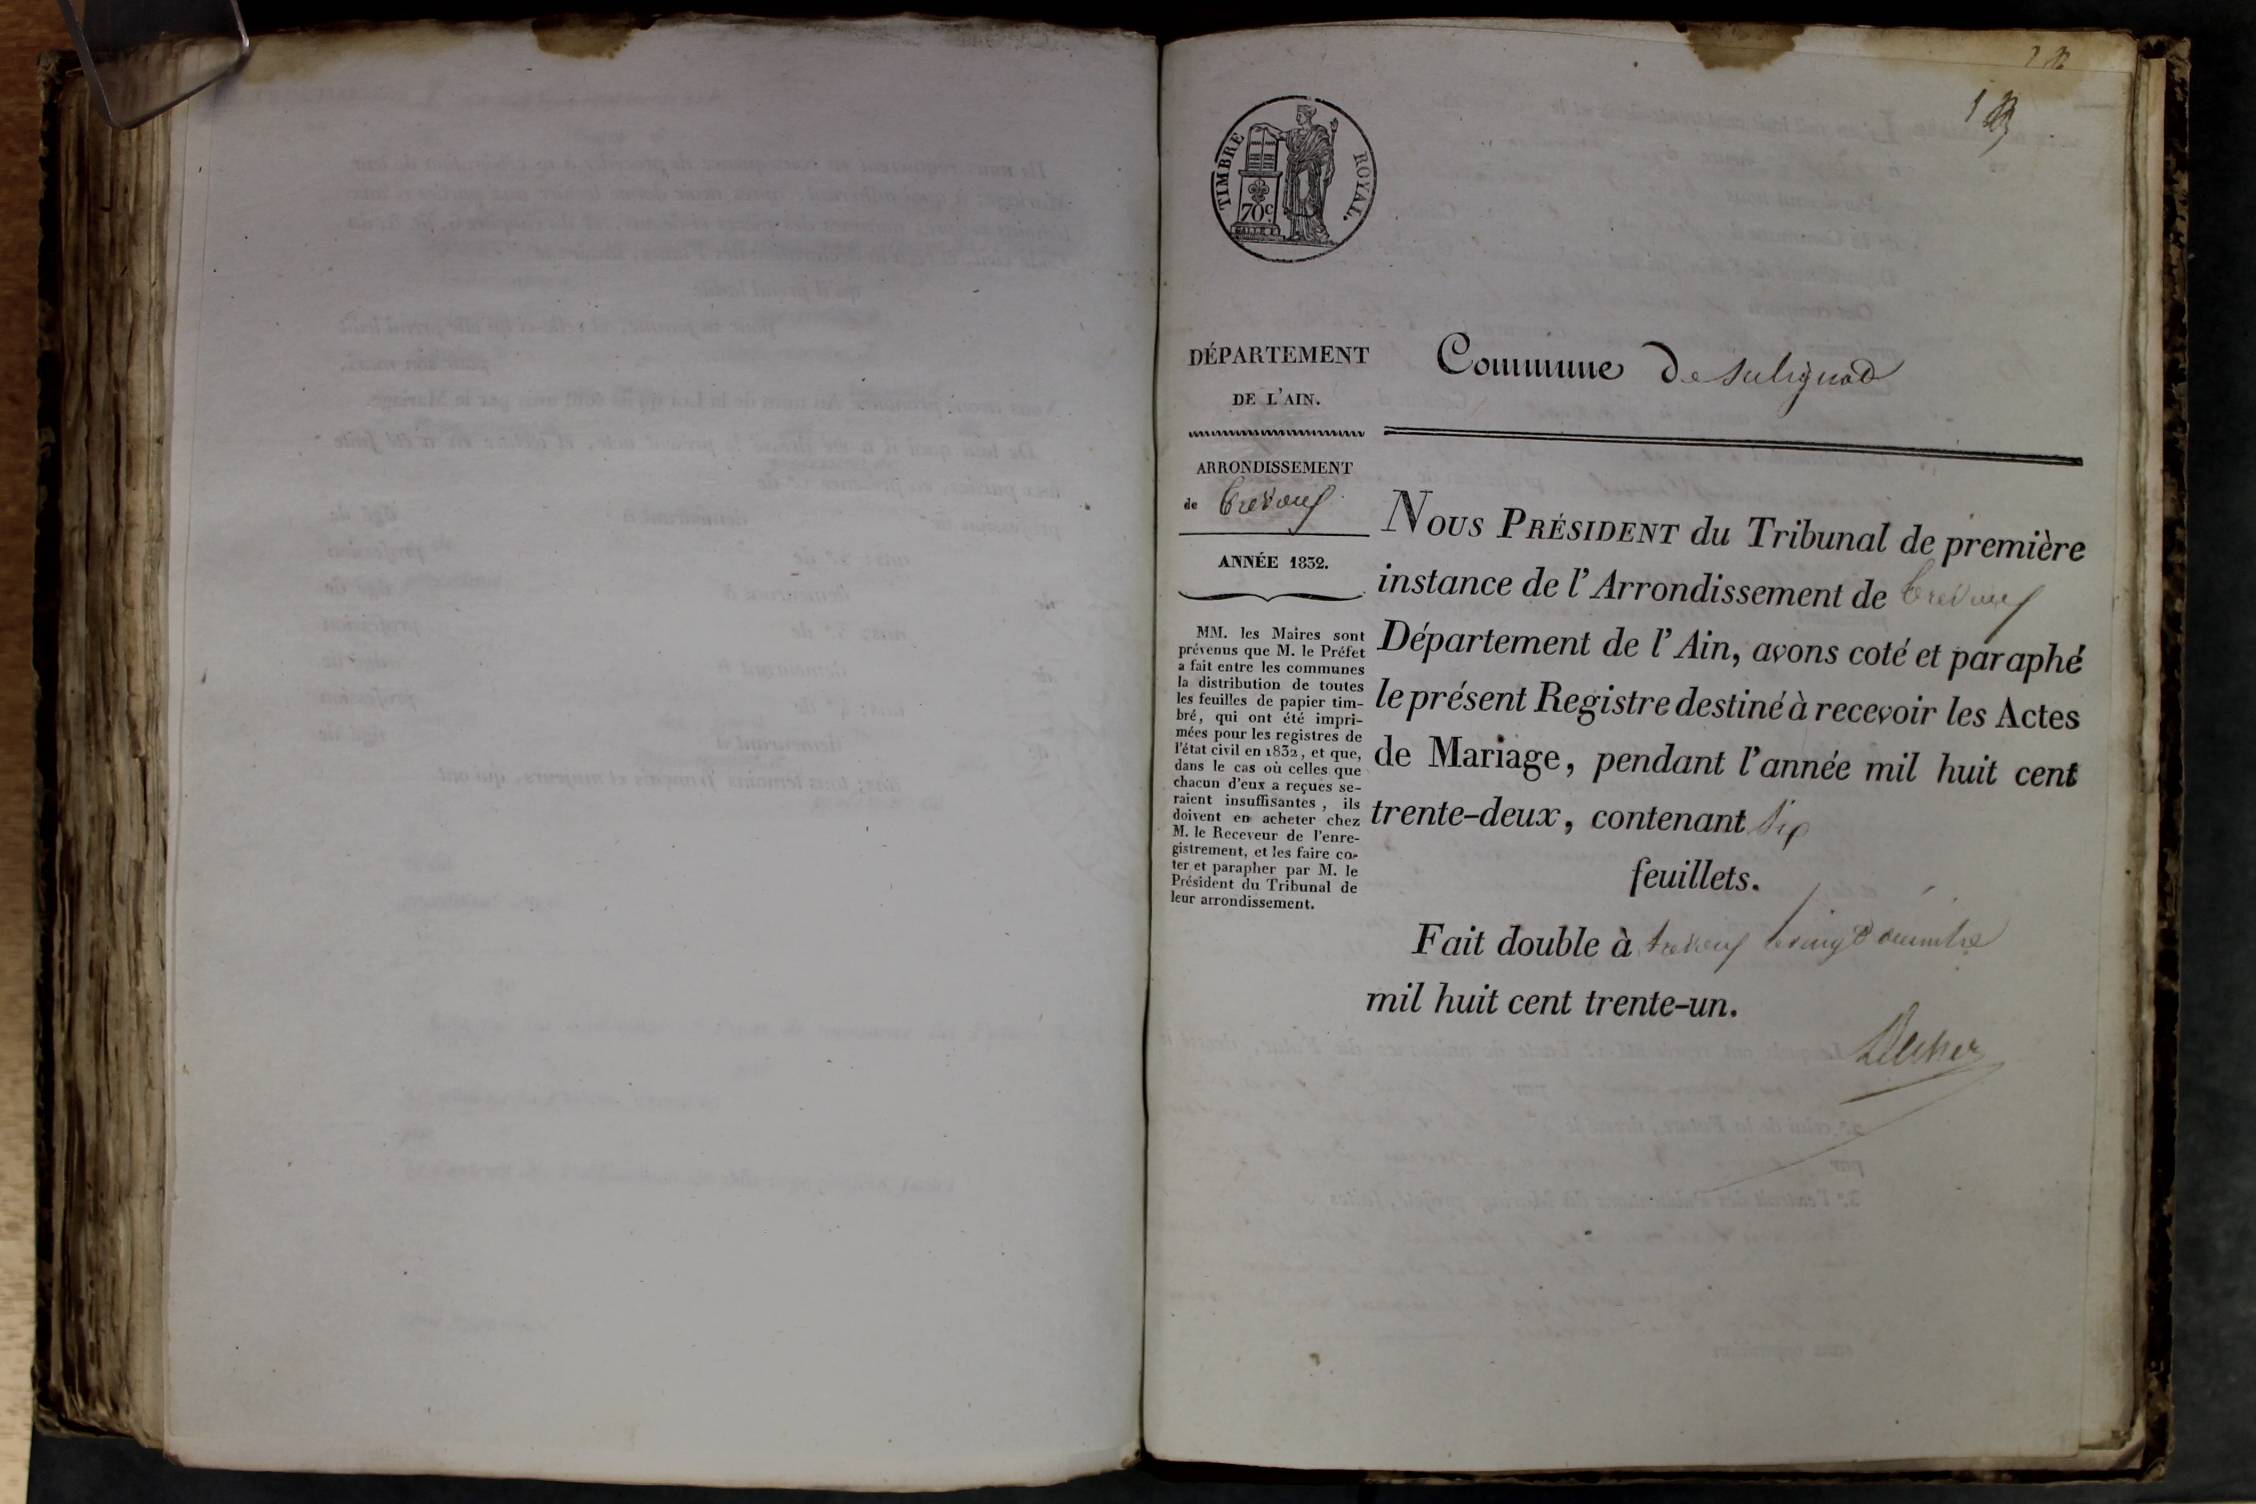 TIMBRE ROYAL.
70c.
DÉPARTEMENT
DE L'AIN.
ARRONDISSEMENT
de Trévoux
ANNÉE 1832.
MM. les Maires sont
prévenus que M. le Préfet
a fait entre les communes
la distribution de toutes
les feuilles de papier tim-
bré, qui ont été impri-
mées pour les registres de
l'état civil en 1832, et que,
dans le cas où celles que
chacun d'eux a reçues se-
raient insuffisantes, ils
doivent en acheter chez
M. le Receveur de l'enre-
gistrement, et les faire co-
ter et parapher par M. le
Président du Tribunal de
leur arrondissement.
Commune De sulignat
NOUS PRÉSIDENT du Tribunal de première
instance de l'Arrondissement de Trévoux
Département de l'Ain, avons coté et paraphé
le présent Registre destiné à recevoir les Actes
de Mariage, pendant l'année mil huit cent
trente-deux, contenant six
feuillets.
Fait double à trévoux le cinq décembre
mil huit cent trente-un.